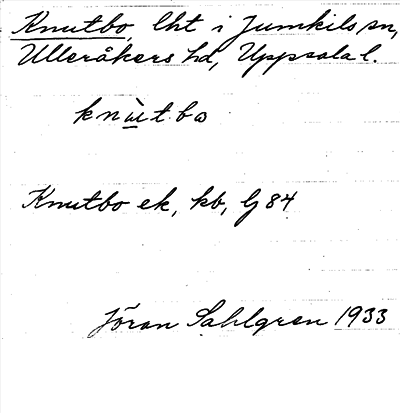 Knutbo, lht i Jumkils sn,
Ulleråkers hd, Uppsala l.
knùt.bω
Knutbo ek, kb, G 84
Jöran Sahlgren 1933